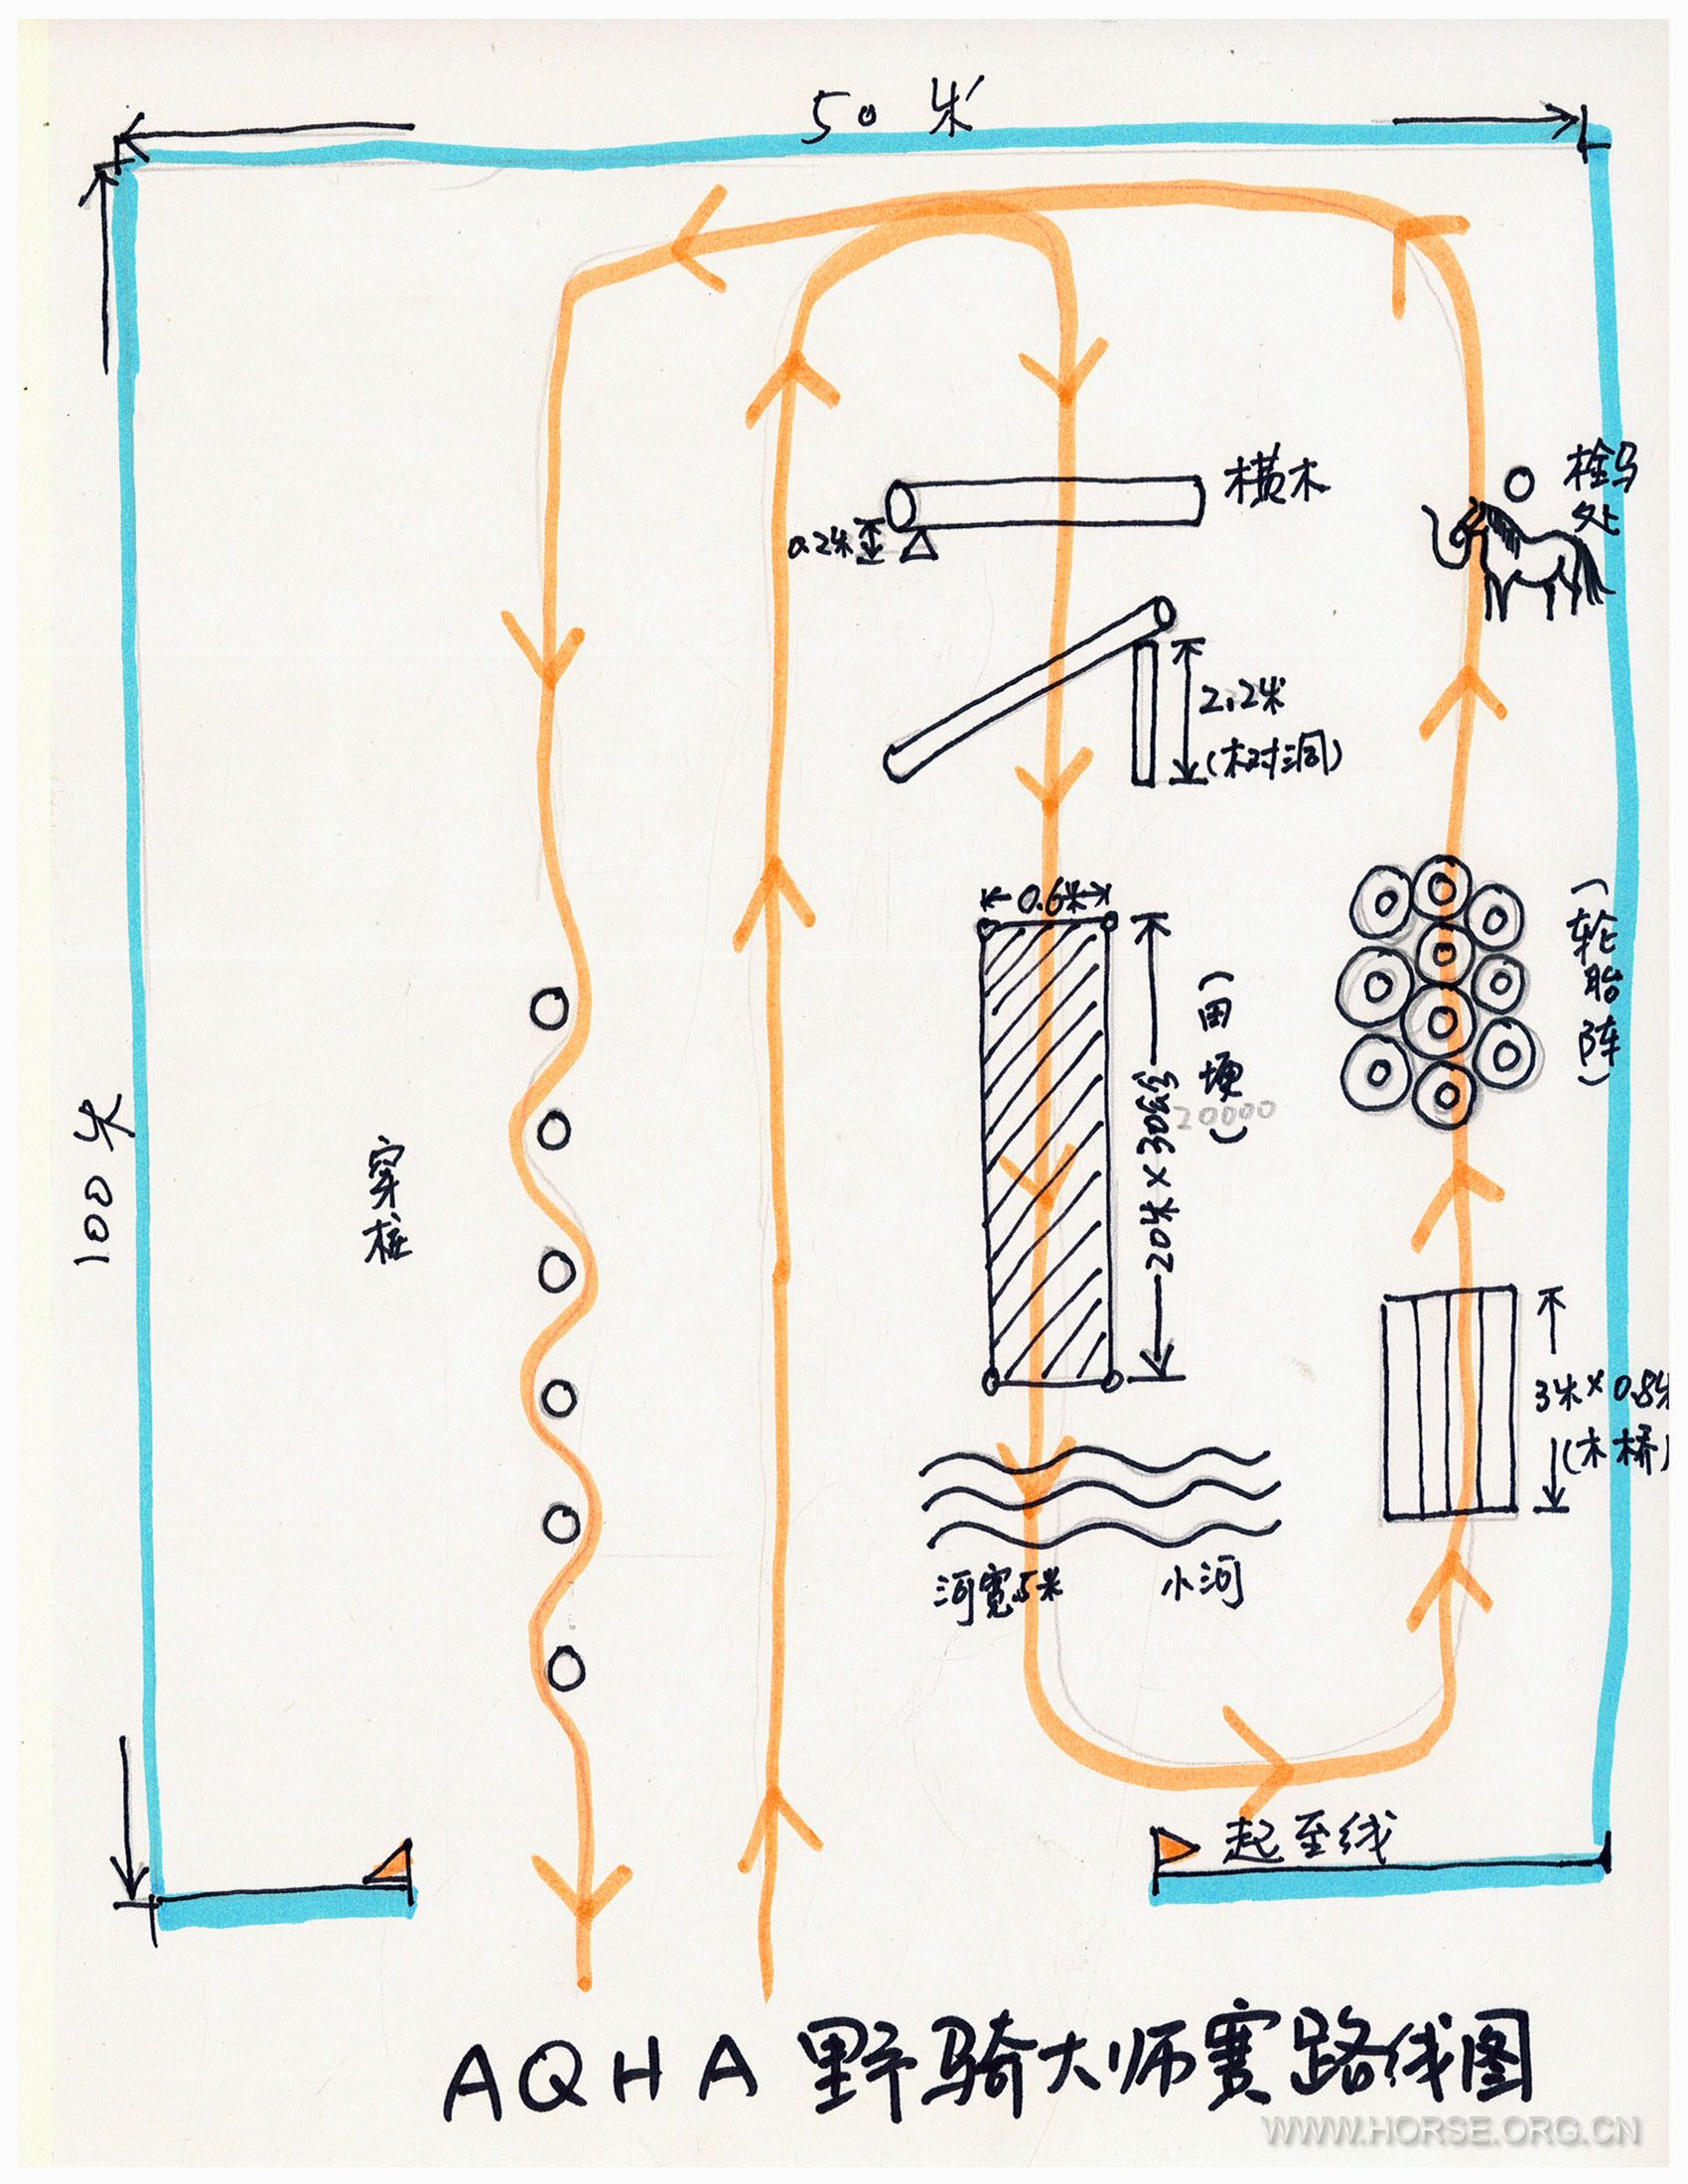 50 米
横木
栓马
处
0.2米
2.2米
(树洞)
0.6米
(轮胎阵)
(田埂)
20000
100米
穿桩
3米×0.8米
(木桥)
河宽5米
小河
起至线
AQHA 野骑大师赛路线图
WWW.HORSE.ORG.CN